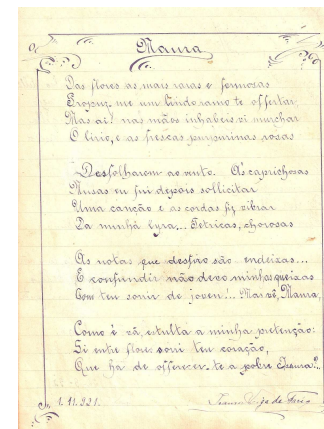 Maura
Das flores as mais raras e formosas
Propuz-me um lindo ramo te offertar,
Mas ai! nas mãos inhabeis vi murchar
O lirio, e as frescas purpurinas rosas
Desfolharem ao vento. Ás caprichosas
Musas eu fui depois sollicitar
Uma canção e as cordas fiz vibrar
Da minha lyra... Tetricas, chorosas
As notas que desfiro são endeixas...
E confundir não devo minhas queixas
Com teu sorrir de joven!... Mas vê, Maura,
Como é vã, estulta a minha pretenção:
Si entre flores sorri teu coração,
Que ha de offerecer-te a pobre Isaura?..
1.11.931.
Isaura